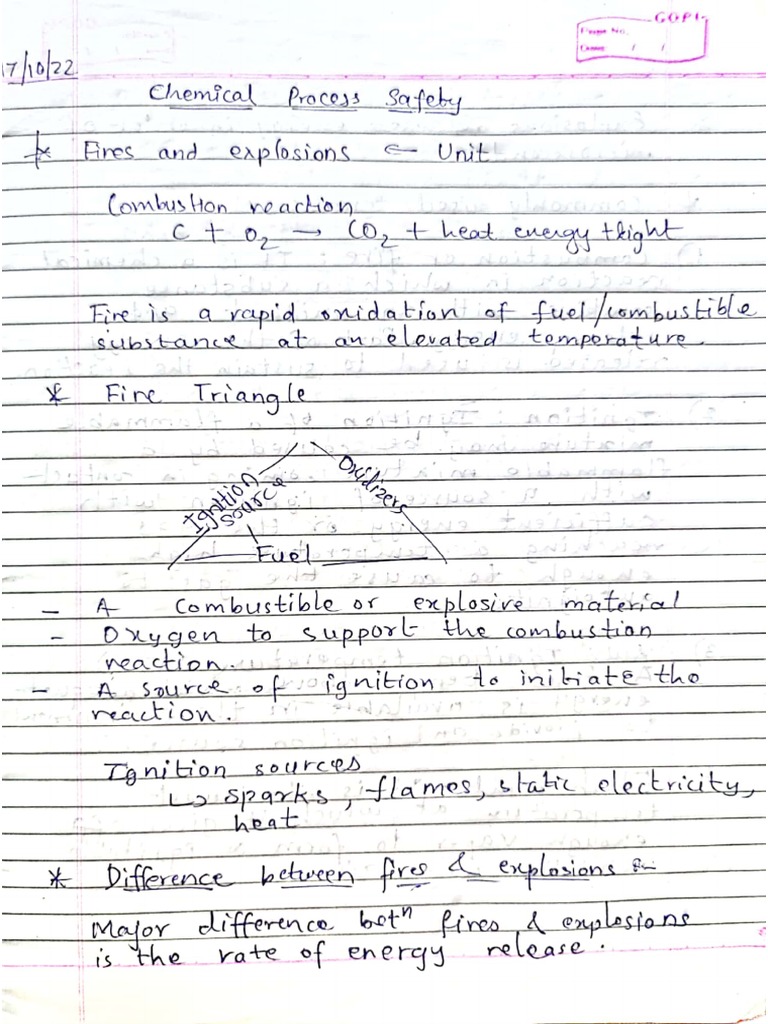 GOPI
Page No.
Date / /
17/10/22
Chemical Process Safety
* Fires and explosions ← Unit
Combustion reaction
C + O2 → CO2 + heat energy + light
Fire is a rapid oxidation of fuel/combustible
substance at an elevated temperature.
* Fire Triangle
Ignition
source
Oxidizers
Fuel
- A combustible or explosive material
- Oxygen to support the combustion
reaction.
- A source of ignition to initiate the
reaction.
Ignition sources
↳ sparks, flames, static electricity,
heat
* Difference between fires & explosions :-
Major difference betn fires & explosions
is the rate of energy release.